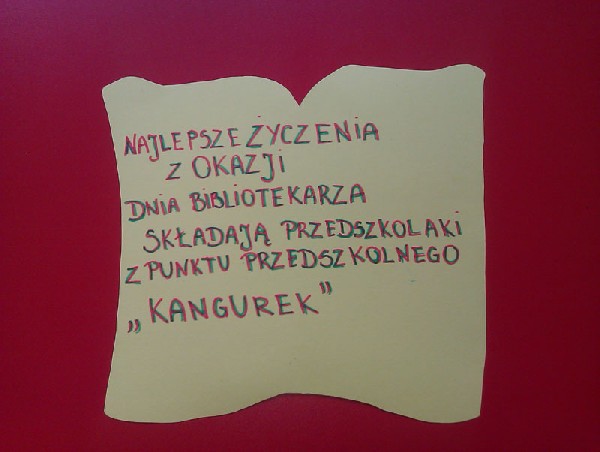 NAJLEPSZE ŻYCZENIA
Z OKAZJI
DNIA BIBLIOTEKARZA
SKŁADAJĄ PRZEDSZKOLAKI
Z PUNKTU PRZEDSZKOLNEGO
„KANGUREK”